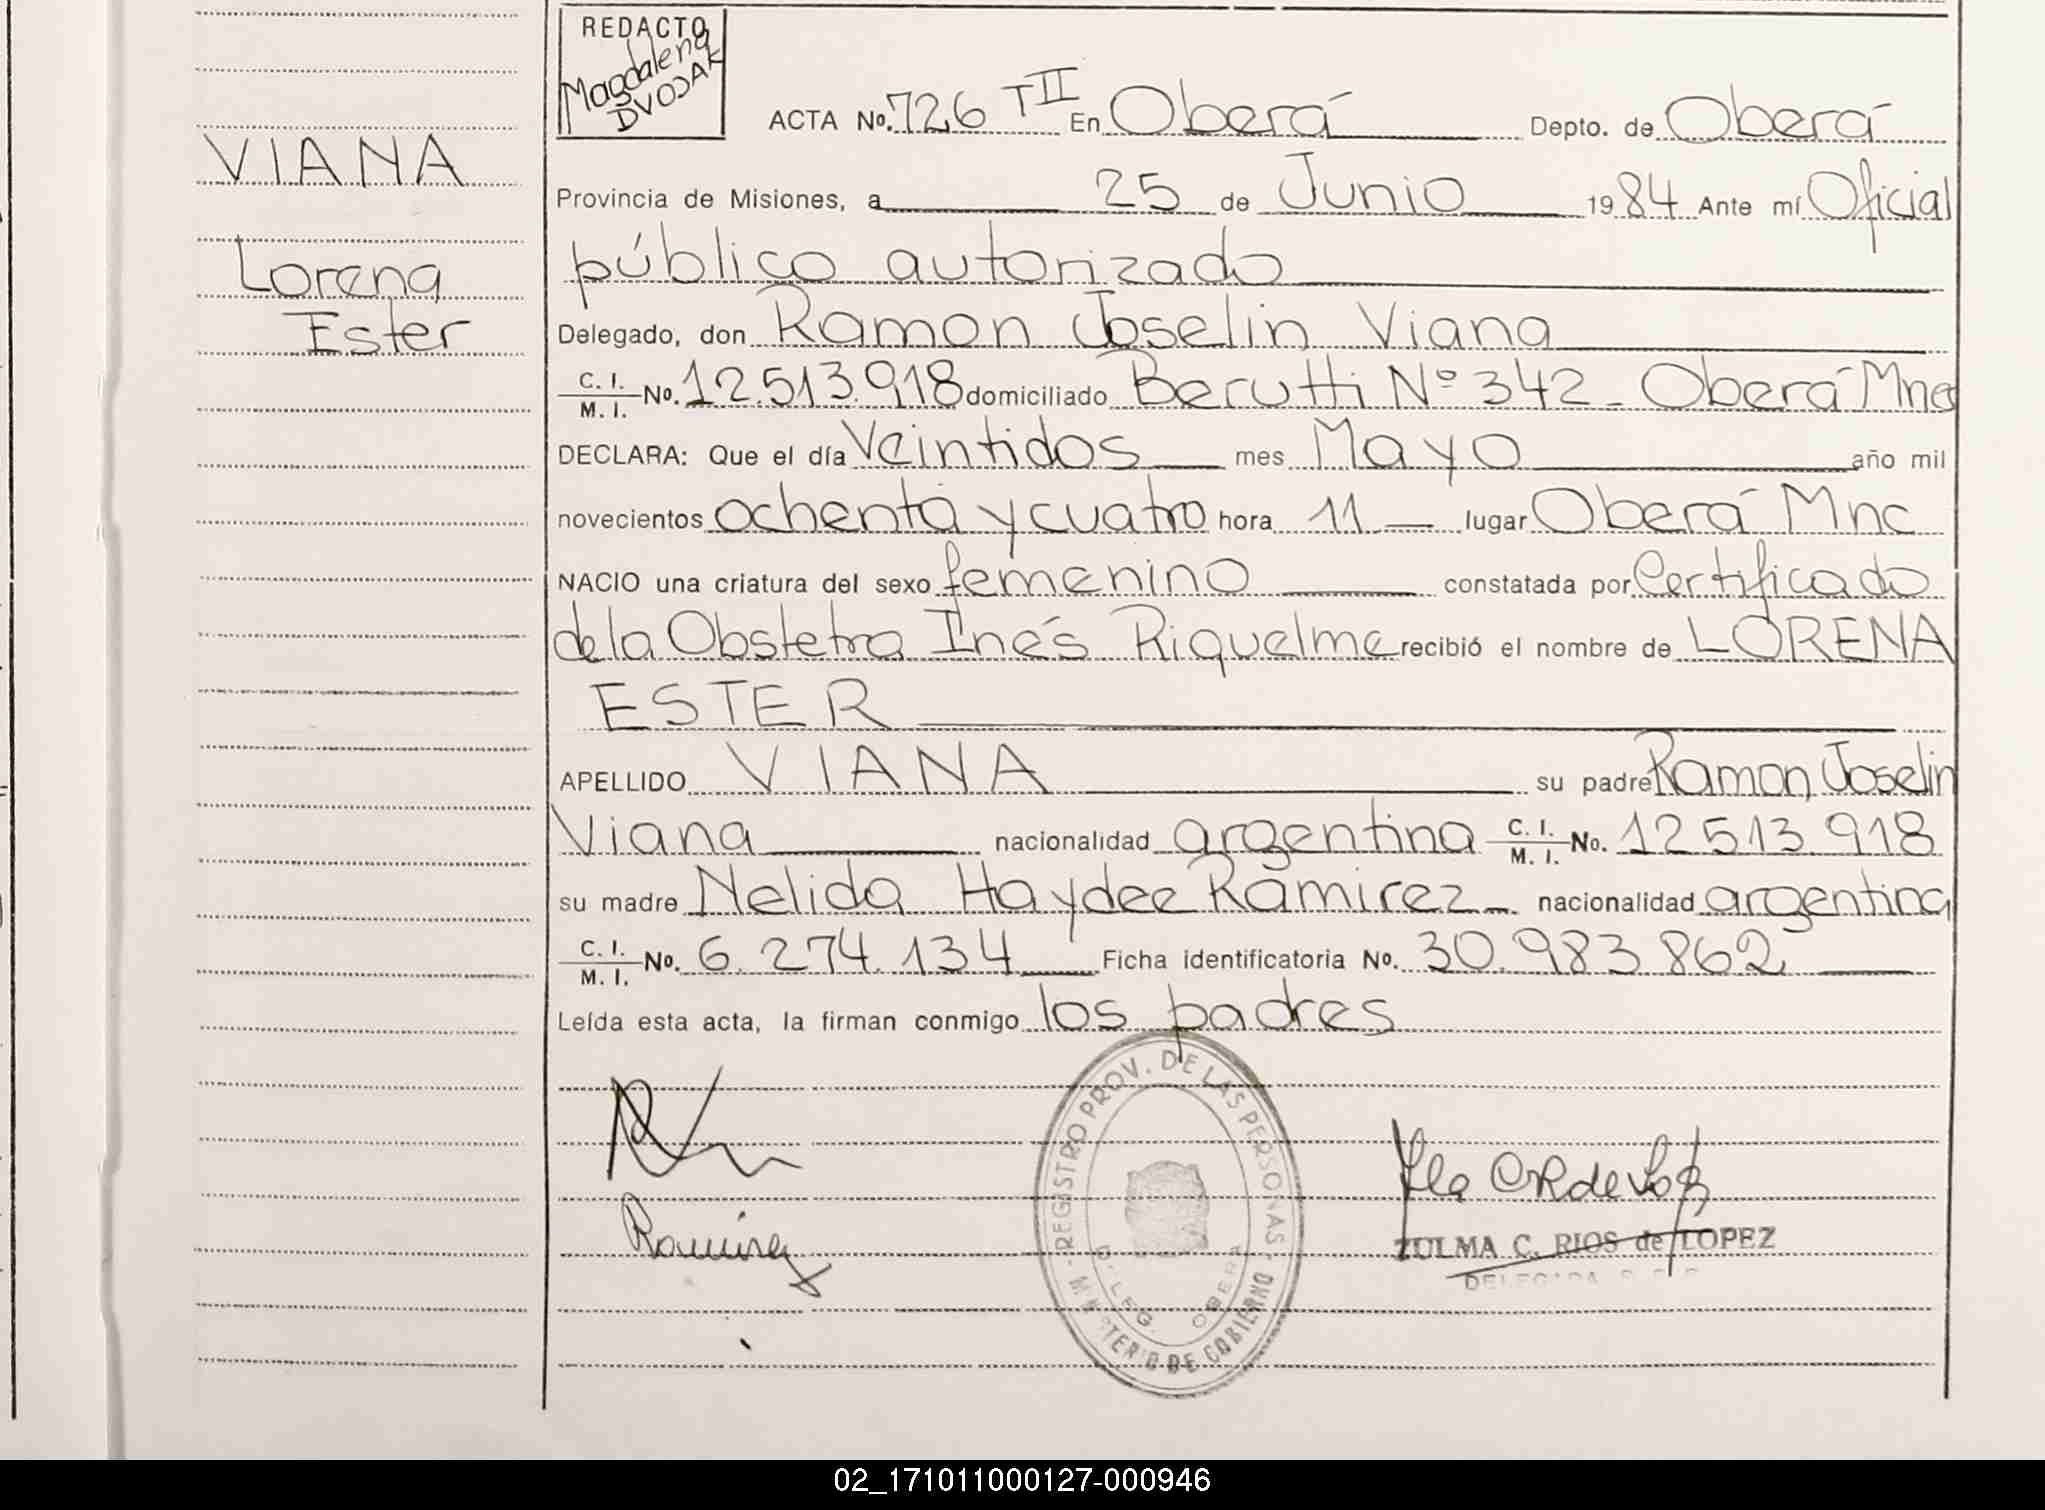 REDACTO
Magdalena
DVOJAK
VIANA
Lorena
Ester
ACTA No. 726 TII En Oberá Depto. de Oberá
Provincia de Misiones, a 25 de Junio 1984 Ante mí Oficial
público autorizado
Delegado, don Ramon Joselin Viana
C. I. / M. I. No. 12.513.918 domiciliado Berutti Nº 342 - Oberá Mnes
DECLARA: Que el día Veintidos mes Mayo año mil
novecientos ochenta y cuatro hora 11 lugar Oberá Mnc
NACIO una criatura del sexo femenino constatada por Certificado
de la Obstetra Inés Riquelme recibió el nombre de LORENA
ESTER
APELLIDO VIANA su padre Ramon Joselin
Viana nacionalidad argentina C. I. / M. I. No. 12513918
su madre Nelida Haydee Ramirez nacionalidad argentina
C. I. / M. I. No. 6.274.134 Ficha identificatoria No. 30.983.862
Leída esta acta, la firman conmigo los padres
REGISTRO PROV. DE LAS PERSONAS - MINISTERIO DE GOBIERNO
DELEG. OBERA
Ramirez
ZULMA C. RIOS de LOPEZ
DELEGADA
02_171011000127-000946